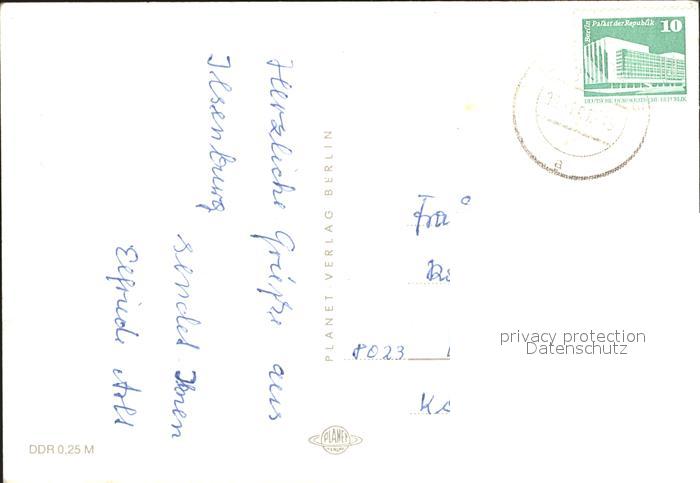 Herzliche Grüße aus
Ilsenburg
sendet Ihnen
Elfriede
PLANET VERLAG BERLIN
Berlin Palast der Republik 10
DEUTSCHE DEMOKRATISCHE REPUBLIK
a
8023
privacy protection
Datenschutz
PLANET
VERLAG
DDR 0,25 M